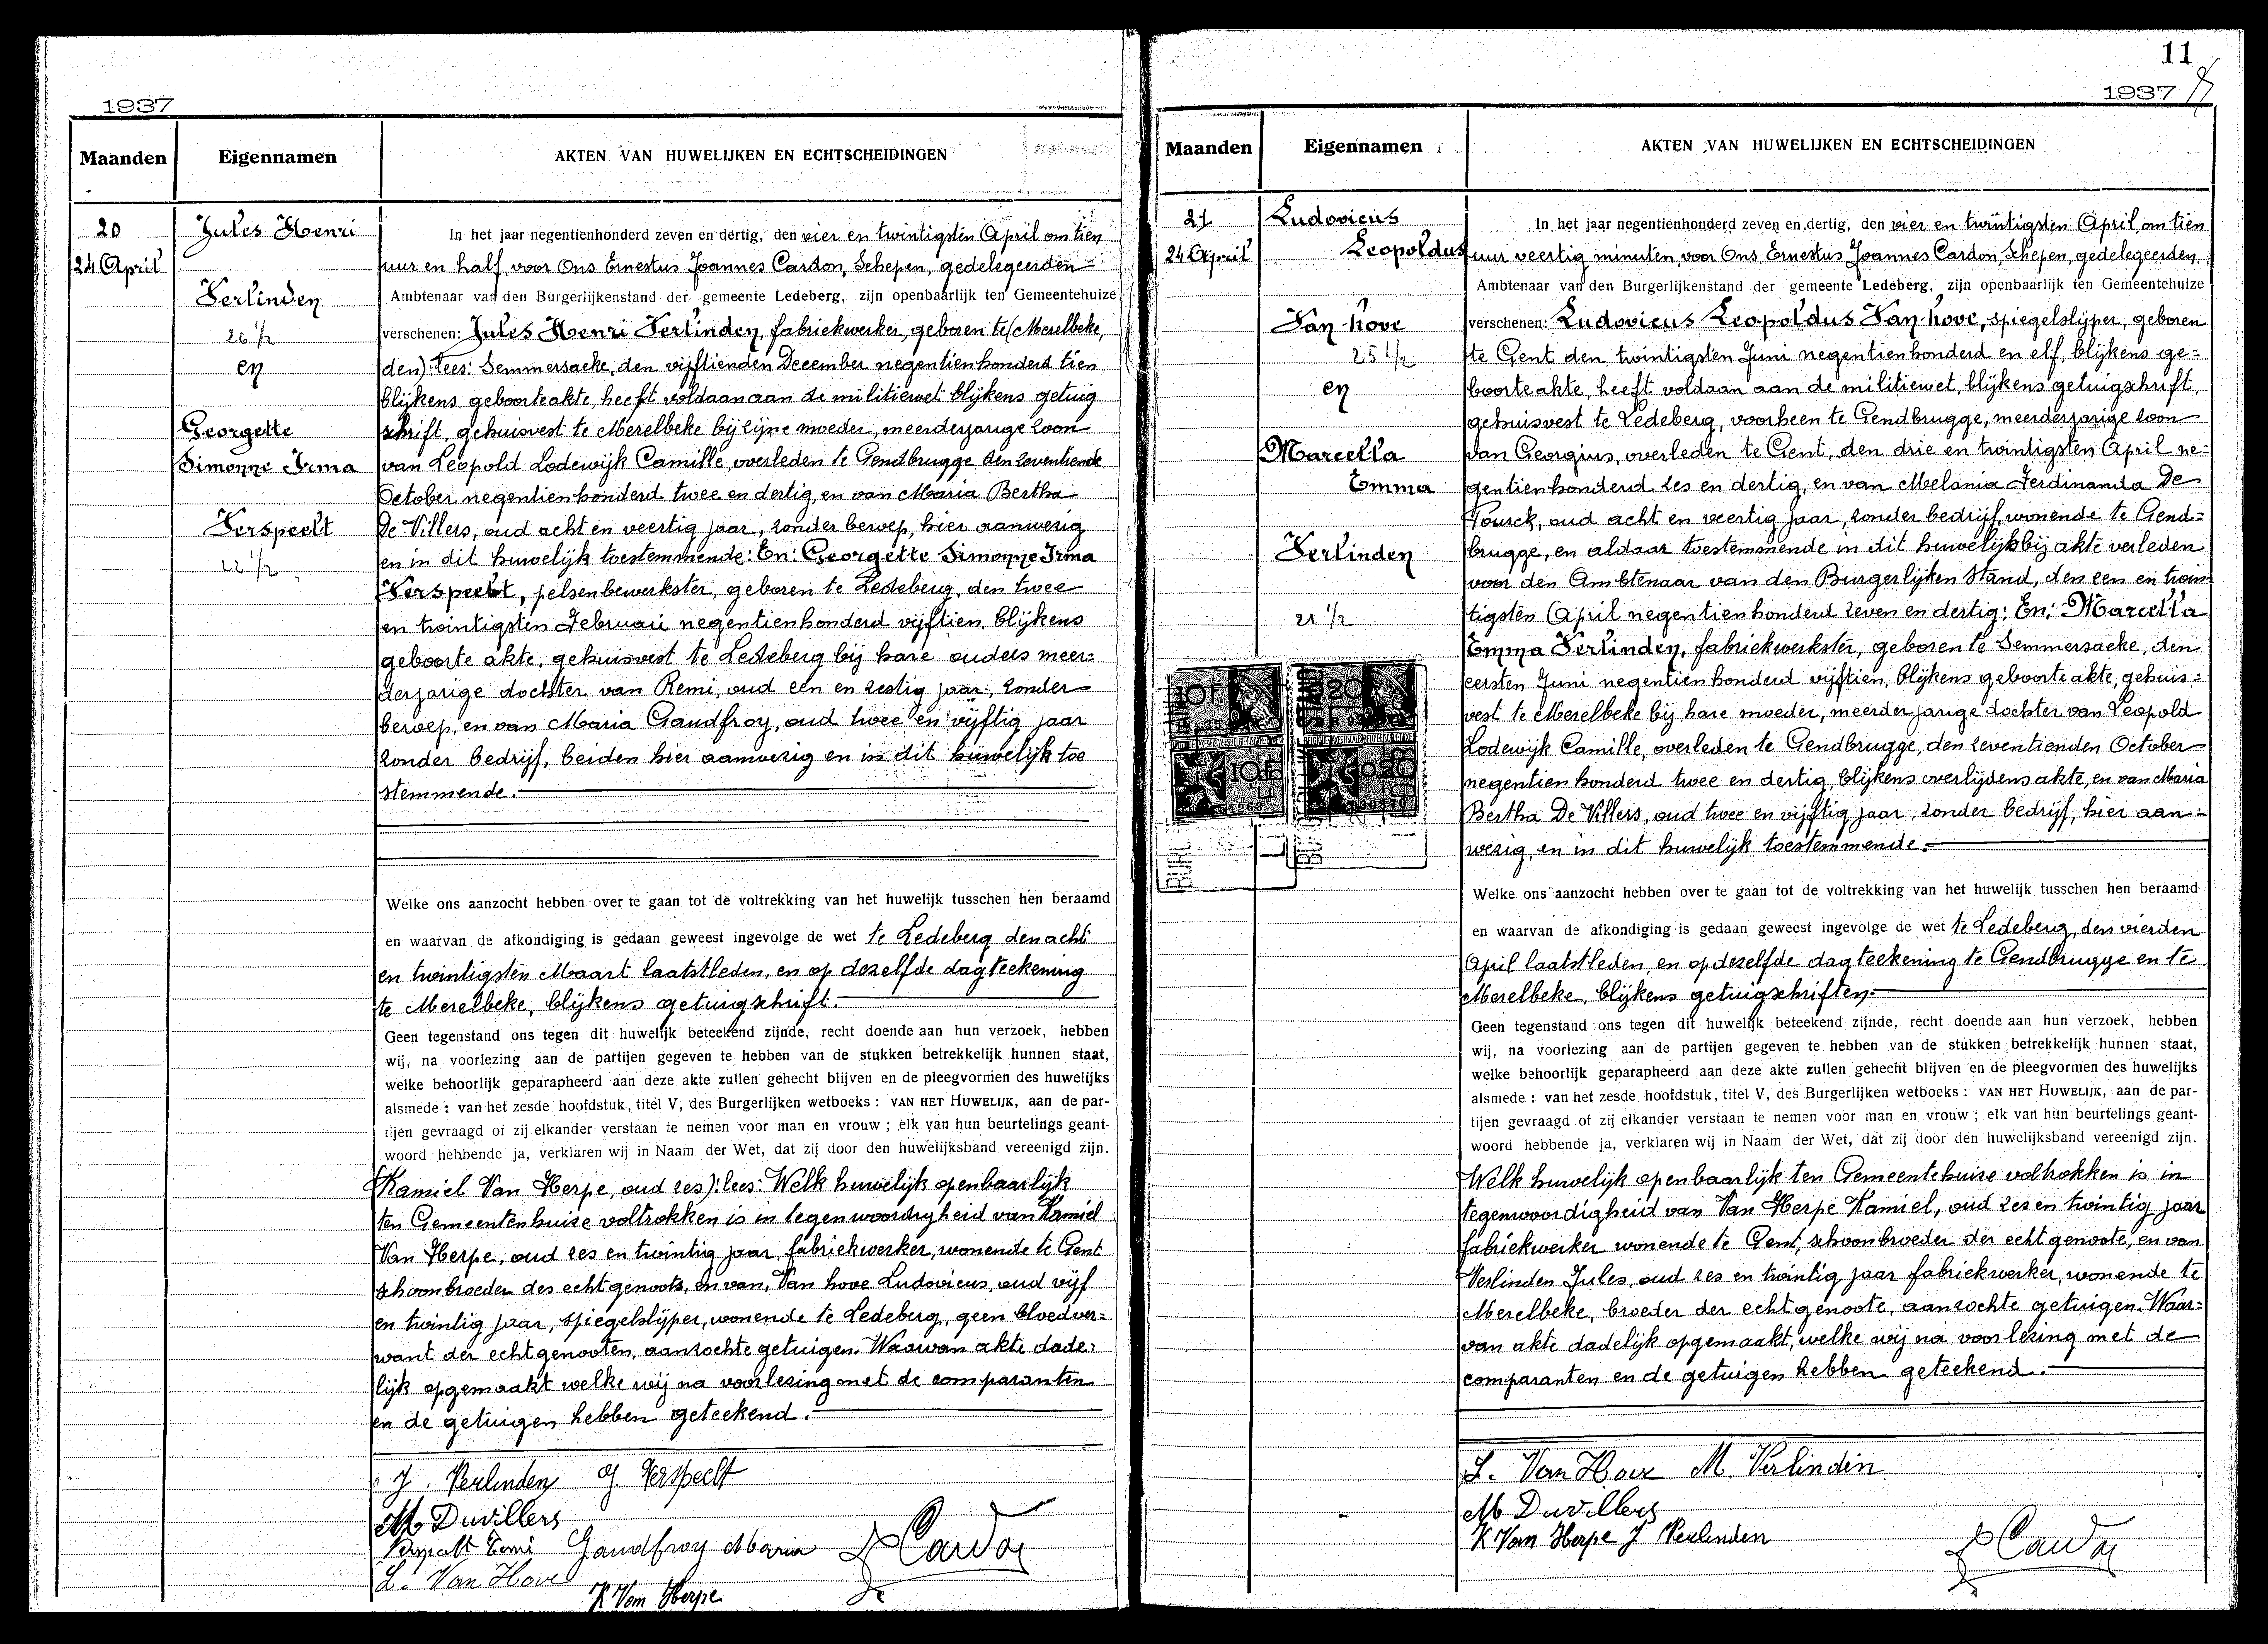 1937
Maanden
Eigennamen
AKTEN VAN HUWELIJKEN EN ECHTSCHEIDINGEN
20
24 April
Jules Henri
Verlinden
26 1/2
en
Georgette
Simonne Irma
Verspeelt
22 1/2
In het jaar negentienhonderd zeven en dertig, den vier en twintigsten April om tien
uur en half voor Ons Ernestus Joannes Cardon, Schepen, gedelegeerden
Ambtenaar van den Burgerlijkenstand der gemeente Ledeberg, zijn openbaarlijk ten Gemeentehuize
verschenen: Jules Henri Verlinden, fabriekwerker, geboren te (Merelbeke,
den): lees: Semmersaeke, den vijftienden December negentien honderd tien
blijkens geboorteakte, heeft voldaan aan de militiewet blijkens getuig
schrift, gehuisvest te Merelbeke bij zijne moeder, meerderjarige zoon
van Leopold Lodewijk Camille, overleden te Gendbrugge den zeventiende
October negentien honderd twee en dertig, en van Maria Bertha
De Villers, oud acht en veertig jaar, zonder beroep, hier aanwezig
en in dit huwelijk toestemmende: En: Georgette Simonne Irma
Verspeelt, pelsenbewerkster, geboren te Ledeberg, den twee
en twintigsten Februari negentien honderd vijftien, blijkens
geboorte akte, gehuisvest te Ledeberg bij hare ouders meer=
derjarige dochter van Remi, oud een en zestig jaar, zonder
beroep, en van Maria Gaudfroy, oud twee en vijftig jaar
zonder bedrijf, beiden hier aanwezig en in dit huwelijk toe
stemmende.
Welke ons aanzocht hebben over te gaan tot de voltrekking van het huwelijk tusschen hen beraamd
en waarvan de afkondiging is gedaan geweest ingevolge de wet te Ledeberg den acht
en twintigsten Maart laatstleden, en op dezelfde dagteekening
te Merelbeke, blijkens getuigschrift.
Geen tegenstand ons tegen dit huwelijk beteekend zijnde, recht doende aan hun verzoek, hebben
wij, na voorlezing aan de partijen gegeven te hebben van de stukken betrekkelijk hunnen staat,
welke behoorlijk geparapheerd aan deze akte zullen gehecht blijven en de pleegvormen des huwelijks
alsmede : van het zesde hoofdstuk, titel V, des Burgerlijken wetboeks : VAN HET HUWELIJK, aan de par-
tijen gevraagd of zij elkander verstaan te nemen voor man en vrouw ; elk van hun beurtelings geant-
woord hebbende ja, verklaren wij in Naam der Wet, dat zij door den huwelijksband vereenigd zijn.
(Kamiel Van Herpe, oud zes): lees: Welk huwelijk openbaarlijk
ten Gemeentenhuize voltrokken is in tegenwoordigheid van Kamiel
Van Herpe, oud zes en twintig jaar, fabriekwerker, wonende te Gent
schoonbroeder des echtgenoots, en van, Van hove Ludovicus, oud vijf
en twintig jaar, spiegelslijper, wonende te Ledeberg, geen bloedver=
want der echtgenooten, aanzochte getuigen. Waarvan akte dade=
lijk opgemaakt welke wij na voorlezing met de comparanten
en de getuigen hebben geteekend.
J. Verlinden G Verspeelt
M Duvillers
Verspeelt Remi Gaudfroy Maria E Cardon
L. Van Hove
K Van Herpe
11
1937
Maanden
Eigennamen
AKTEN VAN HUWELIJKEN EN ECHTSCHEIDINGEN
21
24 April
Ludovicus
Leopoldus
Van hove
25 1/2
en
Marcella
Emma
Verlinden
21 1/2
10F
020
10F
020
In het jaar negentienhonderd zeven en dertig, den vier en twintigsten April, om tien
uur veertig minuten voor Ons Ernestus Joannes Cardon, Schepen, gedelegeerden
Ambtenaar van den Burgerlijkenstand der gemeente Ledeberg, zijn openbaarlijk ten Gemeentehuize
verschenen: Ludovicus Leopoldus Van hove, spiegelslijper, geboren
te Gent den twintigsten Juni negentien honderd en elf, blijkens ge=
boorteakte, heeft voldaan aan de militiewet, blijkens getuigschrift,
gehuisvest te Ledeberg, voorheen te Gendbrugge, meerderjarige zoon
van Georgius, overleden te Gent, den drie en twintigsten April ne=
gentienhonderd zes en dertig, en van Melania Ferdinanda De
Vourck, oud acht en veertig jaar, zonder bedrijf, wonende te Gend=
brugge, en aldaar toestemmende in dit huwelijk bij akte verleden
voor den Ambtenaar van den Burgerlijken Stand, den een en twin=
tigsten April negentien honderd zeven en dertig: En: Marcella
Emma Verlinden, fabriekwerkster, geboren te Semmersaeke, den
eersten Juni negentien honderd vijftien, blijkens geboorte akte, gehuis=
vest te Merelbeke bij hare moeder, meerderjarige dochter van Leopold
Lodewijk Camille, overleden te Gendbrugge, den zeventienden October
negentien honderd twee en dertig, blijkens overlijdensakte, en van Maria
Bertha De Villers, oud twee en vijftig jaar, zonder bedrijf, hier aan=
wezig, en in dit huwelijk toestemmende.
Welke ons aanzocht hebben over te gaan tot de voltrekking van het huwelijk tusschen hen beraamd
en waarvan de afkondiging is gedaan geweest ingevolge de wet te Ledeberg, den vierden
April laatstleden, en op dezelfde dagteekening te Gendbrugge en te
Merelbeke, blijkens getuigschriften.
Geen tegenstand ons tegen dit huwelijk beteekend zijnde, recht doende aan hun verzoek, hebben
wij, na voorlezing aan de partijen gegeven te hebben van de stukken betrekkelijk hunnen staat,
welke behoorlijk geparapheerd aan deze akte zullen gehecht blijven en de pleegvormen des huwelijks
alsmede : van het zesde hoofdstuk, titel V, des Burgerlijken wetboeks : VAN HET HUWELIJK, aan de par-
tijen gevraagd of zij elkander verstaan te nemen voor man en vrouw ; elk van hun beurtelings geant-
woord hebbende ja, verklaren wij in Naam der Wet, dat zij door den huwelijksband vereenigd zijn.
Welk huwelijk openbaarlijk ten Gemeentehuize voltrokken is in
tegenwoordigheid van Van Herpe Kamiel, oud zes en twintig jaar
fabriekwerker wonende te Gent, schoonbroeder der echtgenoote, en van
Verlinden Jules, oud zes en twintig jaar fabriekwerker, wonende te
Merelbeke, broeder der echtgenoote, aanzochte getuigen. Waar=
van akte dadelijk opgemaakt, welke wij na voorlezing met de
comparanten en de getuigen hebben geteekend.
L. Van Hove M. Verlinden
M Duvillers
K Van Herpe J Verlinden
E Cardon